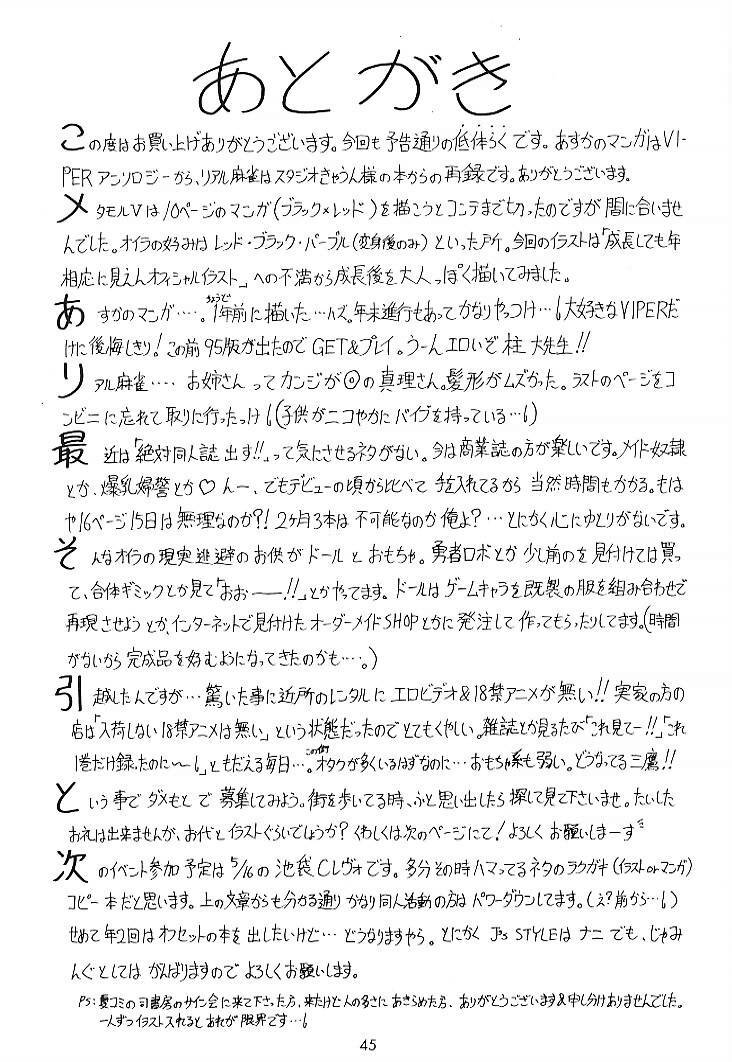 あとがき
この度はお買い上げありがとうございます。今回も予告通りの低体らくです。あすかのマンガはVI-
PERアンソロジーから、リアル麻雀はスタジオきゃうん様の本からの再録です。ありがとうございます。
メタモルVは10ページのマンガ(ブラック×レッド)を描こうとコンテまで切ったのですが間に合いませ
んでした。オイラの好みはレッド・ブラック・パープル(変身後のみ)といった所。今回のイラストは「成長しても年
相応に見えんオフィシャルイラスト」への不満から成長後を大人っぽく描いてみました。
あすかのマンガ‥‥。1年前に描いた…ハズ。年末進行もあってかなりやっつけ…大好きなVIPERだ
けに後悔しきり!この前95版が出たのでGET&プレイ。うーんエロいぞ柱大先生!!
リアル麻雀‥‥お姉さんってカンジが◎の真理さん。髪形がムズかった。ラストのページをコ
ンビニに忘れて取りに行ったっけ(子供がニコやかにバイブを持っている…)
最近は「絶対同人誌出す!!」って気にさせるネタがない。今は商業誌の方が楽しいです。メイド奴隷
とか、爆乳婦警とか♡んー、でもデビューの頃から比べて手を入れてるから当然時間もかかる。もは
や16ページ15日は無理なのか?!2ヶ月3本は不可能なのか俺よ?…とにかく心にゆとりがないです。
そんなオイラの現実逃避のお供がドールとおもちゃ。勇者ロボとか少し前のを見付けては買っ
て、合体ギミックとか見て「おぉ——!!」とかやってます。ドールはゲームキャラを既製の服を組み合わせで
再現させようとか、インターネットで見付けたオーダーメイドSHOPとかに発注して作ってもらったりしてます。(時間
がないから完成品を好むようになってきたのかも…。)
引越したんですが…驚いた事に近所のレンタルにエロビデオ&18禁アニメが無い!!実家の方の
店は「入荷しない18禁アニメは無い」という状態だったのでとてもくやしい。雑誌とか見るたび「これ見てー!!」「これ
1巻だけ録ったのに〜」ともだえる毎日…。この街オタクが多くいるはずなのに…おもちゃ系も弱い。どうなってる三鷹!!
という事でダメもとで募集してみよう。街を歩いてる時、ふと思い出したら探して見て下さいませ。たいした
お礼は出来ませんが、お代とイラストぐらいでしょうか?くわしくは次のページにて!よろしくお願いしまーす
次のイベント参加予定は5/16の池袋Cレヴォです。多分その時ハマってるネタのラクガキ(イラストorマンガ)
コピー本だと思います。上の文章からも分かる通りかなり同人活動の方はパワーダウンしてます。(え?前から…)
せめて年2回はオフセットの本を出したいけど…どうなりますやら。とにかくJ's STYLEはナニでも、じゃみ
んぐとしてはがんばりますのでよろしくお願いします。
PS:夏コミの司書房のサイン会に来て下さった方、来たけど人の多さにあきらめた方、ありがとうございます&申し分けありませんでした。
一人ずつイラスト入れるとあれが限界です…
45